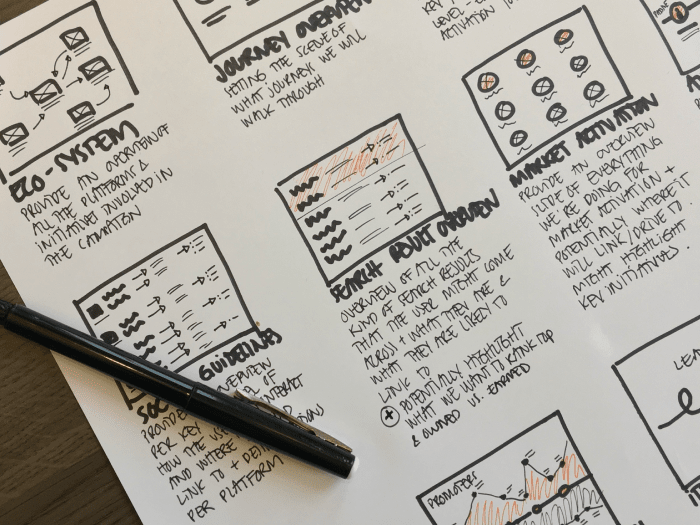 JOURNEY OVERVIEW
SETTING THE SCENE OF
WHAT JOURNEYS WE WILL
WALK THROUGH
KEY
LEVEL -
ACTIVATION TO
ECO-SYSTEM
PROVIDE AN OVERVIEW OF
ALL THE PLATFORMS &
INITIATIVES INVOLVED IN
THE CAMPAIGN
SEARCH RESULT OVERVIEW
OVERVIEW OF ALL THE
KIND OF SEARCH RESULTS
THAT THE USER MIGHT COME
ACROSS + WHAT THEY ARE &
WHAT THEY ARE LIKELY TO
LINK TO
+ POTENTIALLY HIGHLIGHT
WHAT WE WANT TO RANK TOP
& OWNED VS. EARNED
MARKET ACTIVATION
PROVIDE AN OVERVIEW
SLIDE OF EVERYTHING
WE'RE DOING FOR
MARKET ACTIVATION +
POTENTIALLY WHERE IT
WILL LINK/DRIVE TO.
MIGHT HIGHLIGHT
KEY INITIATIVES.
SOC GUIDELINES
PROVIDE OVERVIEW
PER KEY OF
HOW THE USE INTERACT
AND WHERE
LINK TO +
PER PLATFORM
PROMOTERS
LEA